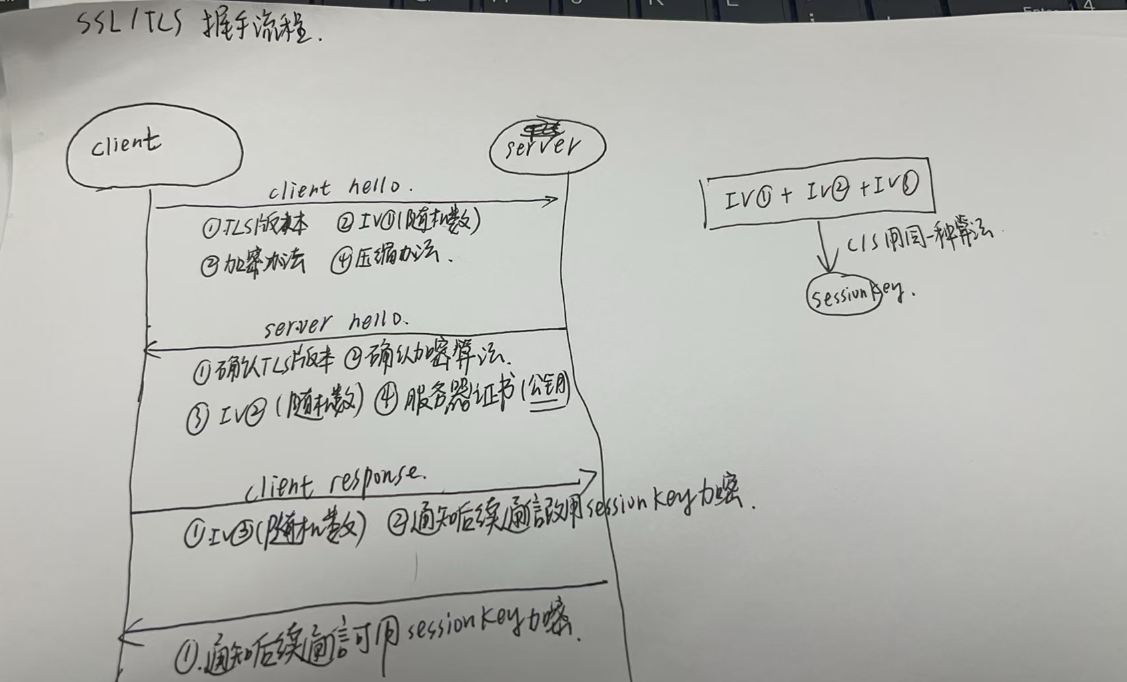 SSL/TLS 握手流程.
client
server
client hello.
①TLS版本 ②IV①(随机数)
③加密办法 ④压缩办法.
server hello.
①确认TLS版本 ②确认加密算法.
③ IV② (随机数) ④ 服务器证书(公钥)
client response.
①IV③(随机数) ②通知后续通信改用session key加密.
①.通知后续通信可用session key加密.
IV① + IV② + IV③
C/S用同一种算法
session key.